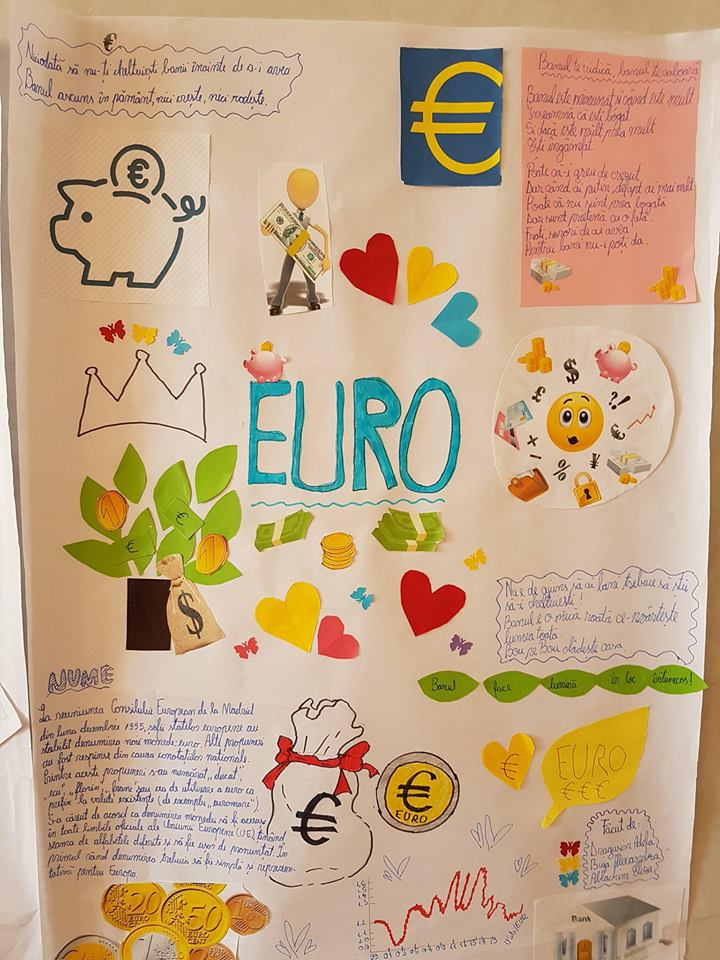 Niciodată să nu-ți cheltuiești banii înainte de a-i avea
Banul ascuns în pământ, nici crește, nici rodește.
€
Banul te ridică, banul te coboară
Banul este mărunt și când este mult
Înseamnă că ești bogat.
Și dacă este mult prea mult
Ești îngâmfat.
Poate că-i greu de crezut
Dar când ai puțin, defapt ai mai mult
Poate că nu sunt prea bogată
Dar sunt prietenă cu o fată.
Frați, surori de ai avea
Pentru bani nu-i poți da.
€
EURO
$
£
?!
€
+
-
%
¥
€
€
$
Nu e de ajuns să ai bani trebuie să știi
să-i cheltuiești!
Banul e o mică roată ce-nvârtește
lumea toată.
Bou pe Bou clădește casa.
Banul face lumină în loc întunecos!
NUME
La reuniunea Consiliului European de la Madrid
din luna decembrie 1995, șefii statelor europene au
stabilit denumirea noii monede: euro. Alte propuneri
au fost respinse din cauza conotațiilor naționale.
Printre aceste propuneri s-au numărat „ducat”,
„ecu”, „florin”, „franc” sau cea de utilizare a euro ca
„prefix” la valută existente (de exemplu, „euromarc”).
S-a căzut de acord ca denumirea monedei să fie aceeași
în toate limbile oficiale ale Uniunii Europene (UE), ținând
seama de alfabetele diferite și să fie ușor de pronunțat. În
primul rând denumirea trebuia să fie simplă și reprezen-
tativă pentru Europa.
€
€
EURO
€
EURO
€€€
Făcut de:
Alexandra
20
EURO
CENT
50
EURO
CENT
10
USD/EUR
Bank